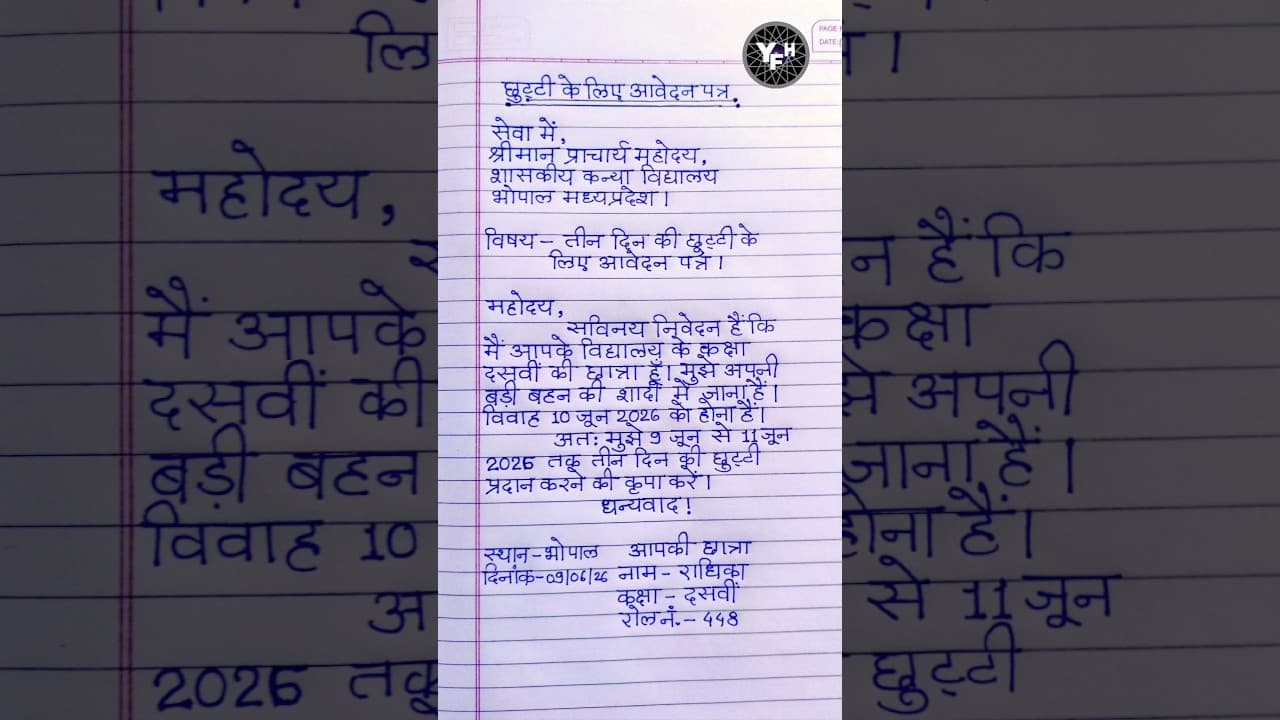 YFH
PAGE
DATE:
छुट्टी के लिए आवेदन पत्र.
सेवा में,
श्रीमान प्राचार्य महोदय,
शासकीय कन्या विद्यालय
भोपाल मध्यप्रदेश।
विषय - तीन दिन की छुट्टी के
लिए आवेदन पत्र।
महोदय,
सविनय निवेदन हैं कि
मैं आपके विद्यालय के कक्षा
दसवीं की छात्रा हूँ। मुझे अपनी
बड़ी बहन की शादी में जाना हैं।
विवाह 10 जून 2026 को होना हैं।
अतः मुझे 9 जून से 11 जून
2026 तक तीन दिन की छुट्टी
प्रदान करने की कृपा करें।
धन्यवाद!
स्थान - भोपाल आपकी छात्रा
दिनांक - 09/06/26 नाम - राधिका
कक्षा - दसवीं
रोल नं. - 448